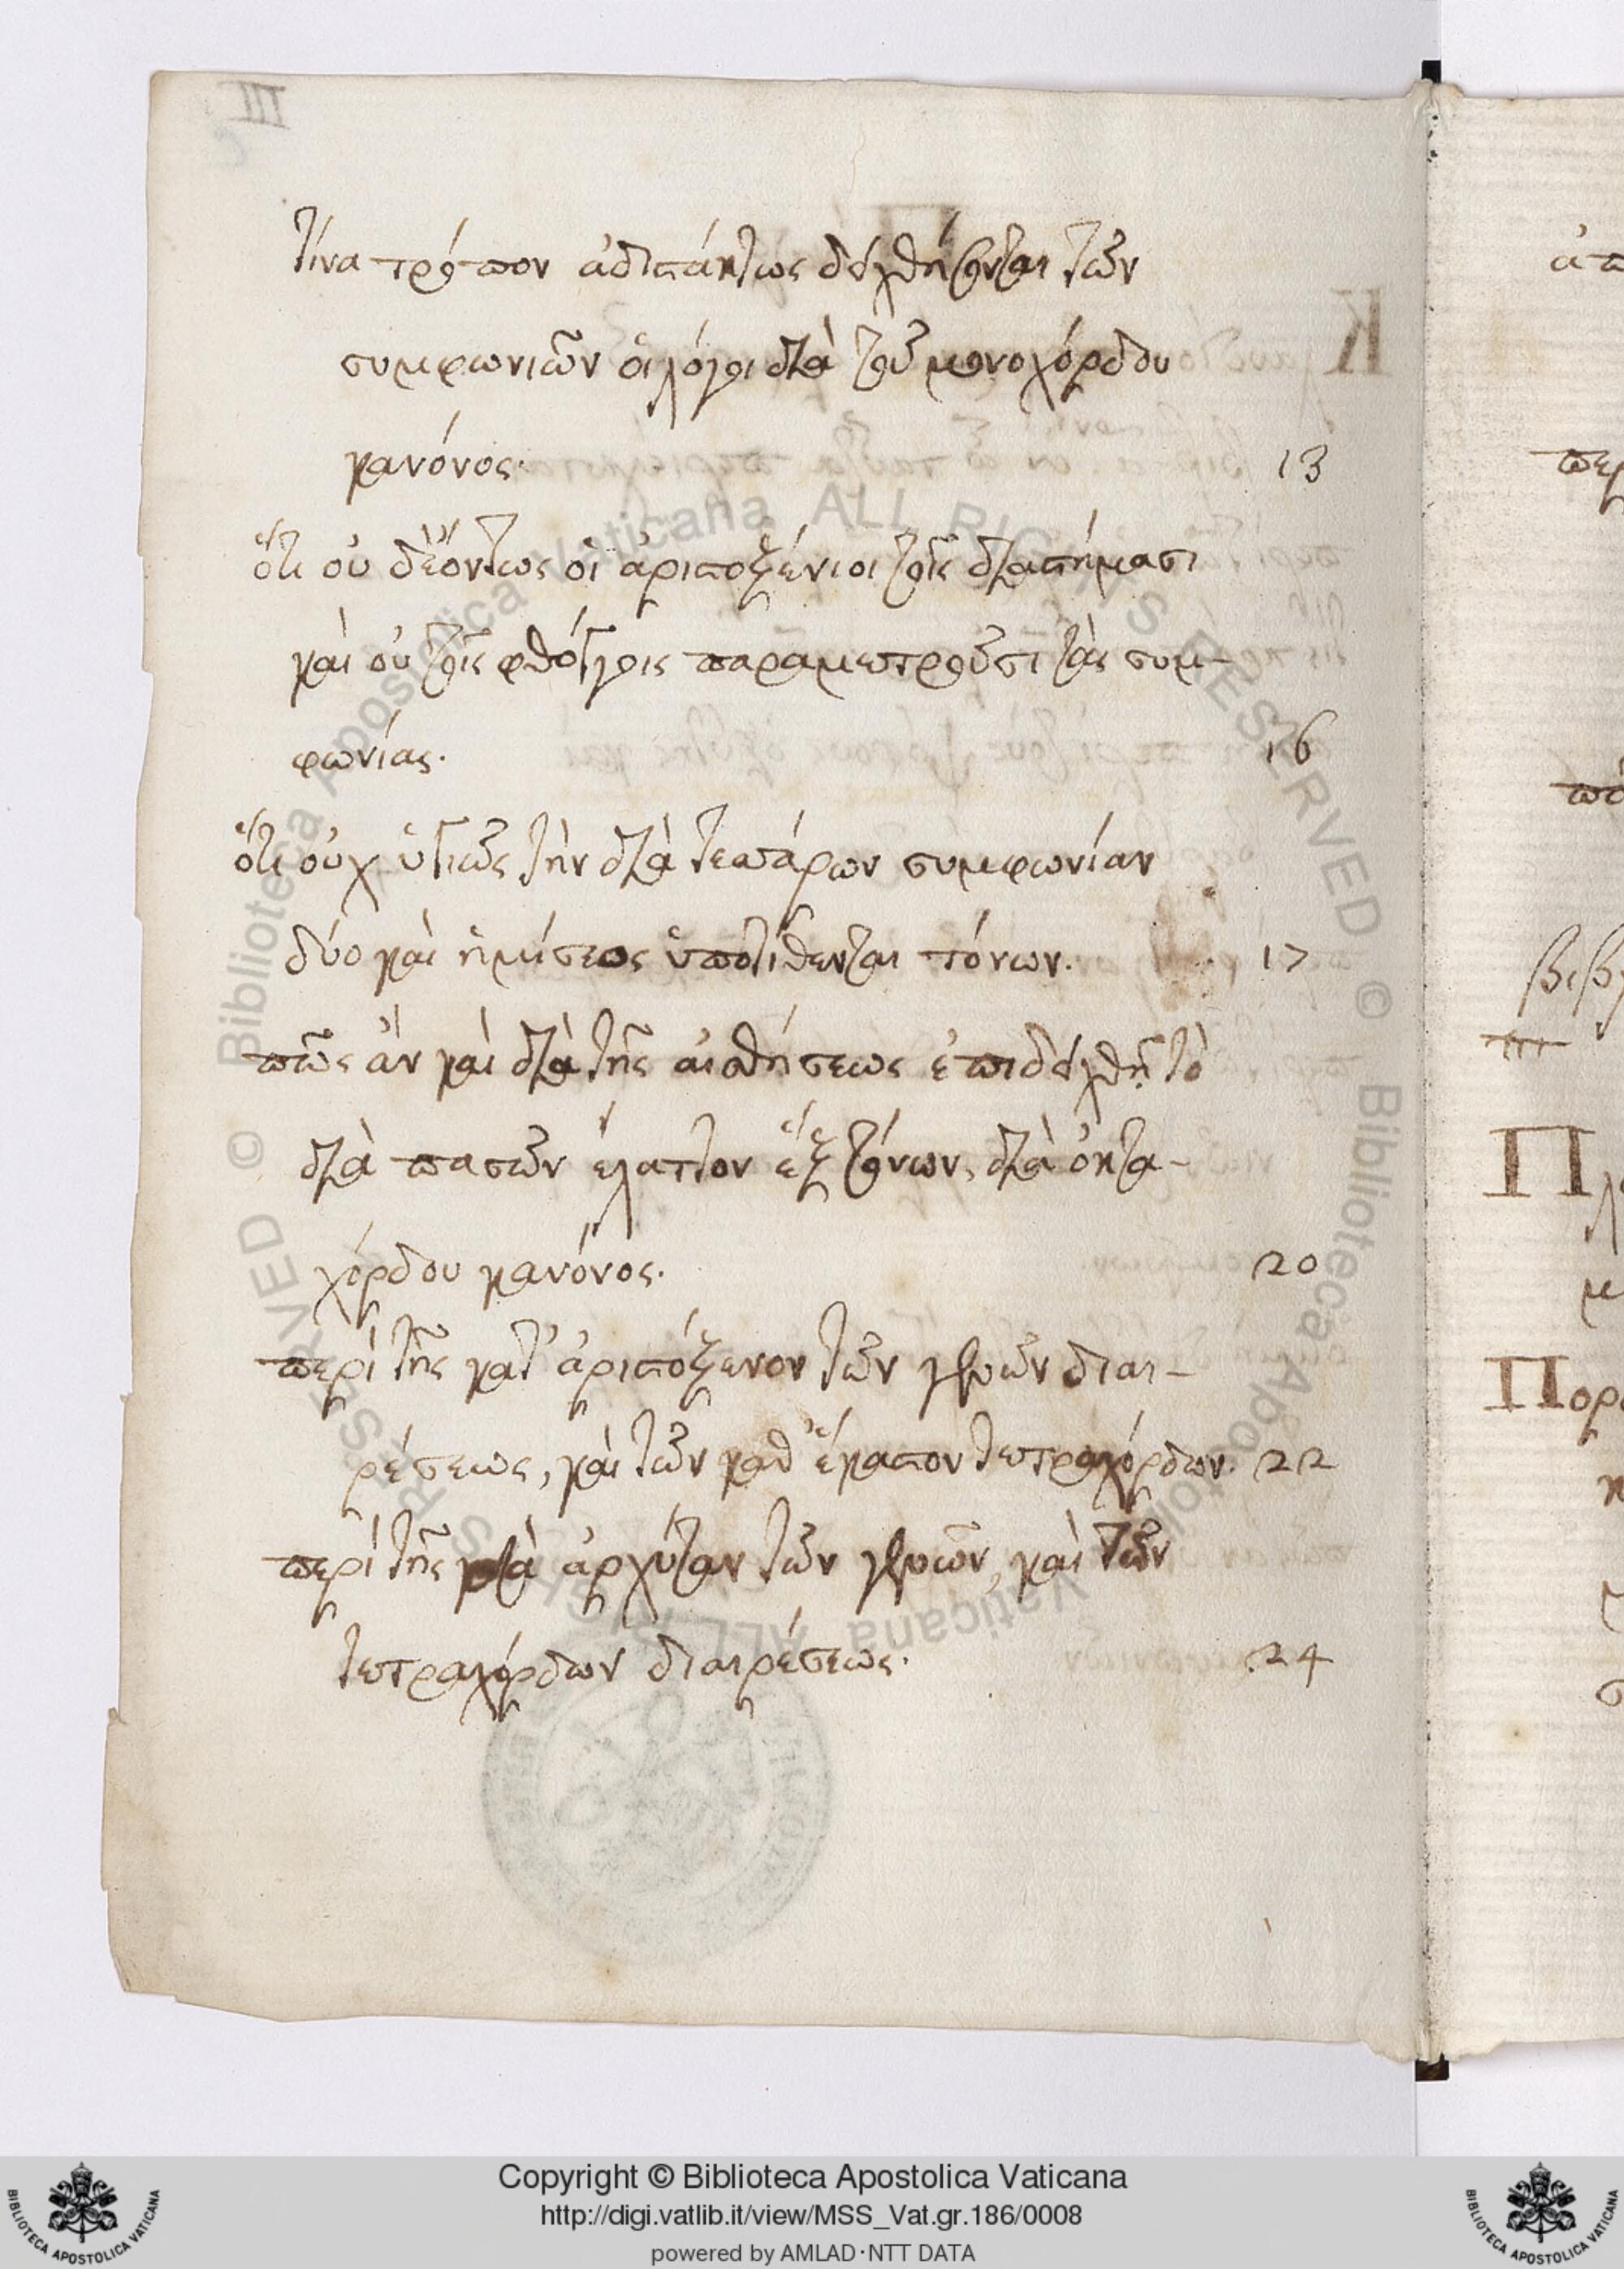 τίνα τρόπον ἀδιστάκτως δειχθήσονται τῶν
συμφωνιῶν οἱ λόγοι διὰ τοῦ μονοχόρδου
κανόνος· 13
ὅτι οὐ δεόντως οἱ ἀριστοξένιοι τοῖς διαστήμασι
καὶ οὐ τοῖς φθόγγοις παραμετροῦσι τὰς συμ-
φωνίας. 16
ὅτι οὐχ ὑγιῶς τὴν διὰ τεσσάρων συμφωνίαν
δύο καὶ ἡμίσεος ὑποτίθενται τόνων. 17
πῶς ἂν καὶ διὰ τῆς αἰσθήσεως ἐπιδειχθῇ τὸ
διὰ πασῶν ἔλαττον ἓξ τόνων, διὰ ὀκτα-
χόρδου κανόνος. 20
περὶ τῆς κατ' ἀριστόξενον τῶν γενῶν διαι-
ρέσεως, καὶ τῶν καθ' ἕκαστον τετραχόρδων. 22
περὶ τῆς κατὰ ἀρχύταν τῶν γενῶν, καὶ τῶν
τετραχόρδων διαιρέσεως. 24
III
Copyright © Biblioteca Apostolica Vaticana
http://digi.vatlib.it/view/MSS_Vat.gr.186/0008
powered by AMLAD·NTT DATA